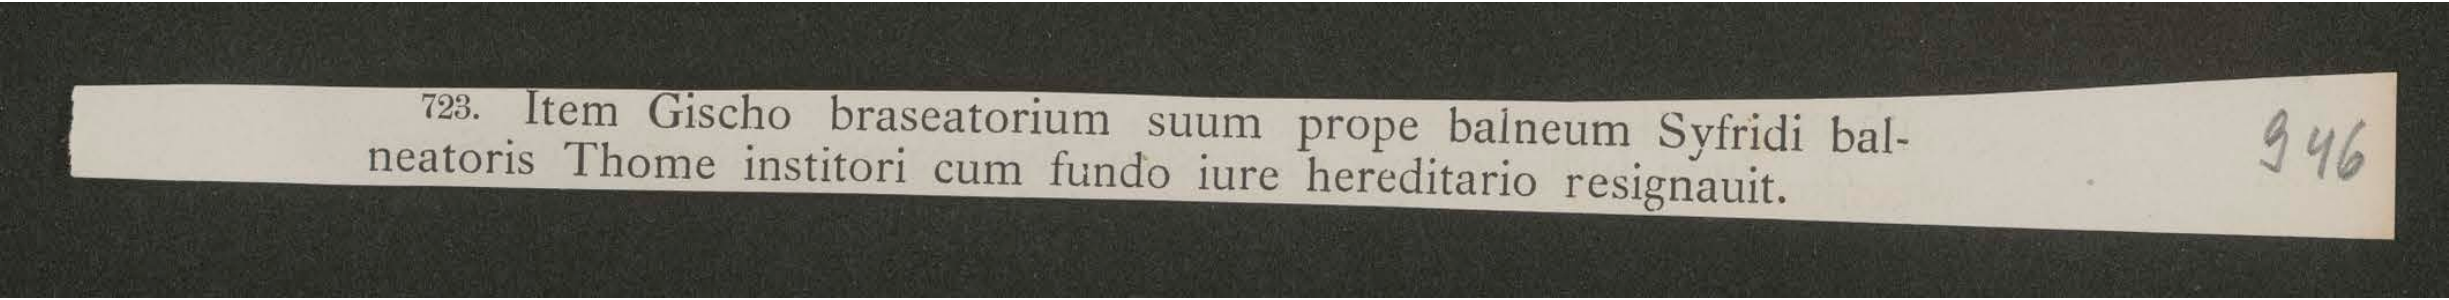 723. Item Gischo braseatorium suum prope balneum Syfridi bal-
neatoris Thome institori cum fundo iure hereditario resignauit.
946